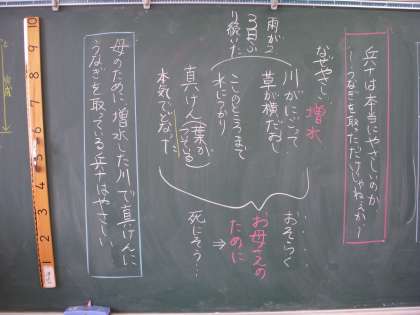 兵十は本当にやさしいのか
〜うなぎを取っただけじゃねえか〜
なぜやさしい
増水
雨が
3日ぶ
り続いた
川がにごって
草が横だおし
こしのところまで
水につかり
真けん(葉が
ついている
本気でどなった
おそらく
お母さんの
ために
⇒
死にそう…
母のために増水した川で真けんに
うなぎを取っている兵十はやさしい
10
9
8
7
6
5
4
3
2
1